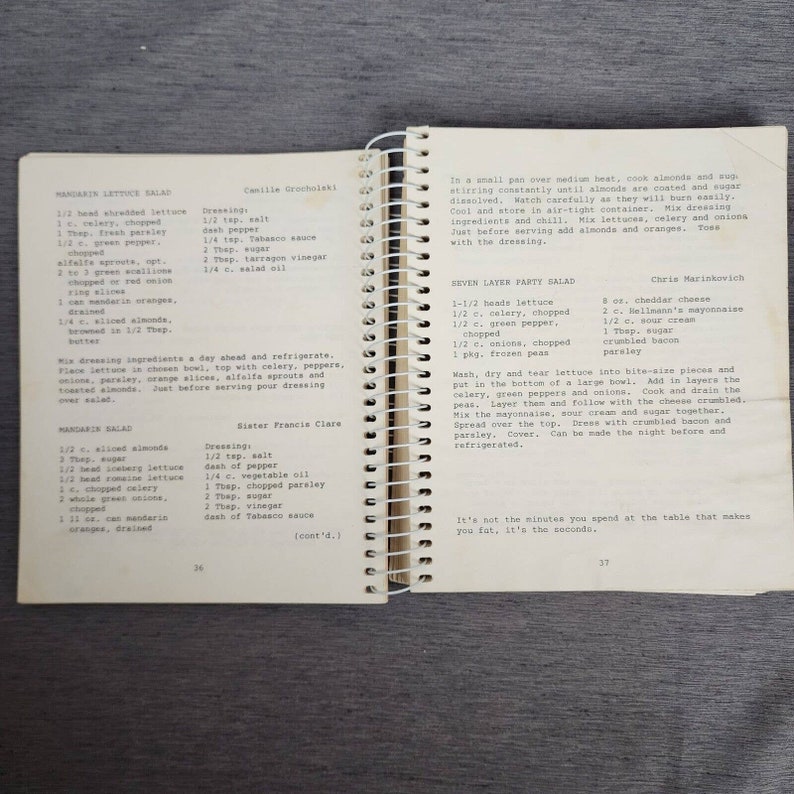 MANDARIN LETTUCE SALAD Camille Grocholski
1/2 head shredded lettuce
1 c. celery, chopped
1 Tbsp. fresh parsley
1/2 c. green pepper,
chopped
alfalfa sprouts, opt.
2 to 3 green scallions
chopped or red onion
ring slices
1 can mandarin oranges,
drained
1/4 c. sliced almonds,
browned in 1/2 Tbsp.
butter
Dressing:
1/2 tsp. salt
dash pepper
1/4 tsp. Tabasco sauce
2 Tbsp. sugar
2 Tbsp. tarragon vinegar
1/4 c. salad oil
Mix dressing ingredients a day ahead and refrigerate.
Place lettuce in chosen bowl, top with celery, peppers,
onions, parsley, orange slices, alfalfa sprouts and
toasted almonds. Just before serving pour dressing
over salad.
MANDARIN SALAD Sister Francis Clare
1/2 c. sliced almonds
3 Tbsp. sugar
1/2 head iceberg lettuce
1/2 head romaine lettuce
1 c. chopped celery
2 whole green onions,
chopped
1 11 oz. can mandarin
oranges, drained
Dressing:
1/2 tsp. salt
dash of pepper
1/4 c. vegetable oil
1 Tbsp. chopped parsley
2 Tbsp. sugar
2 Tbsp. vinegar
dash of Tabasco sauce
(cont'd.)
36
In a small pan over medium heat, cook almonds and suga
stirring constantly until almonds are coated and sugar
dissolved. Watch carefully as they will burn easily.
Cool and store in air-tight container. Mix dressing
ingredients and chill. Mix lettuces, celery and onions
Just before serving add almonds and oranges. Toss
with the dressing.
SEVEN LAYER PARTY SALAD Chris Marinkovich
1-1/2 heads lettuce
1/2 c. celery, chopped
1/2 c. green pepper,
chopped
1/2 c. onions, chopped
1 pkg. frozen peas
8 oz. cheddar cheese
2 c. Hellmann's mayonnaise
1/2 c. sour cream
1 Tbsp. sugar
crumbled bacon
parsley
Wash, dry and tear lettuce into bite-size pieces and
put in the bottom of a large bowl. Add in layers the
celery, green peppers and onions. Cook and drain the
peas. Layer them and follow with the cheese crumbled.
Mix the mayonnaise, sour cream and sugar together.
Spread over the top. Dress with crumbled bacon and
parsley. Cover. Can be made the night before and
refrigerated.
It's not the minutes you spend at the table that makes
you fat, it's the seconds.
37